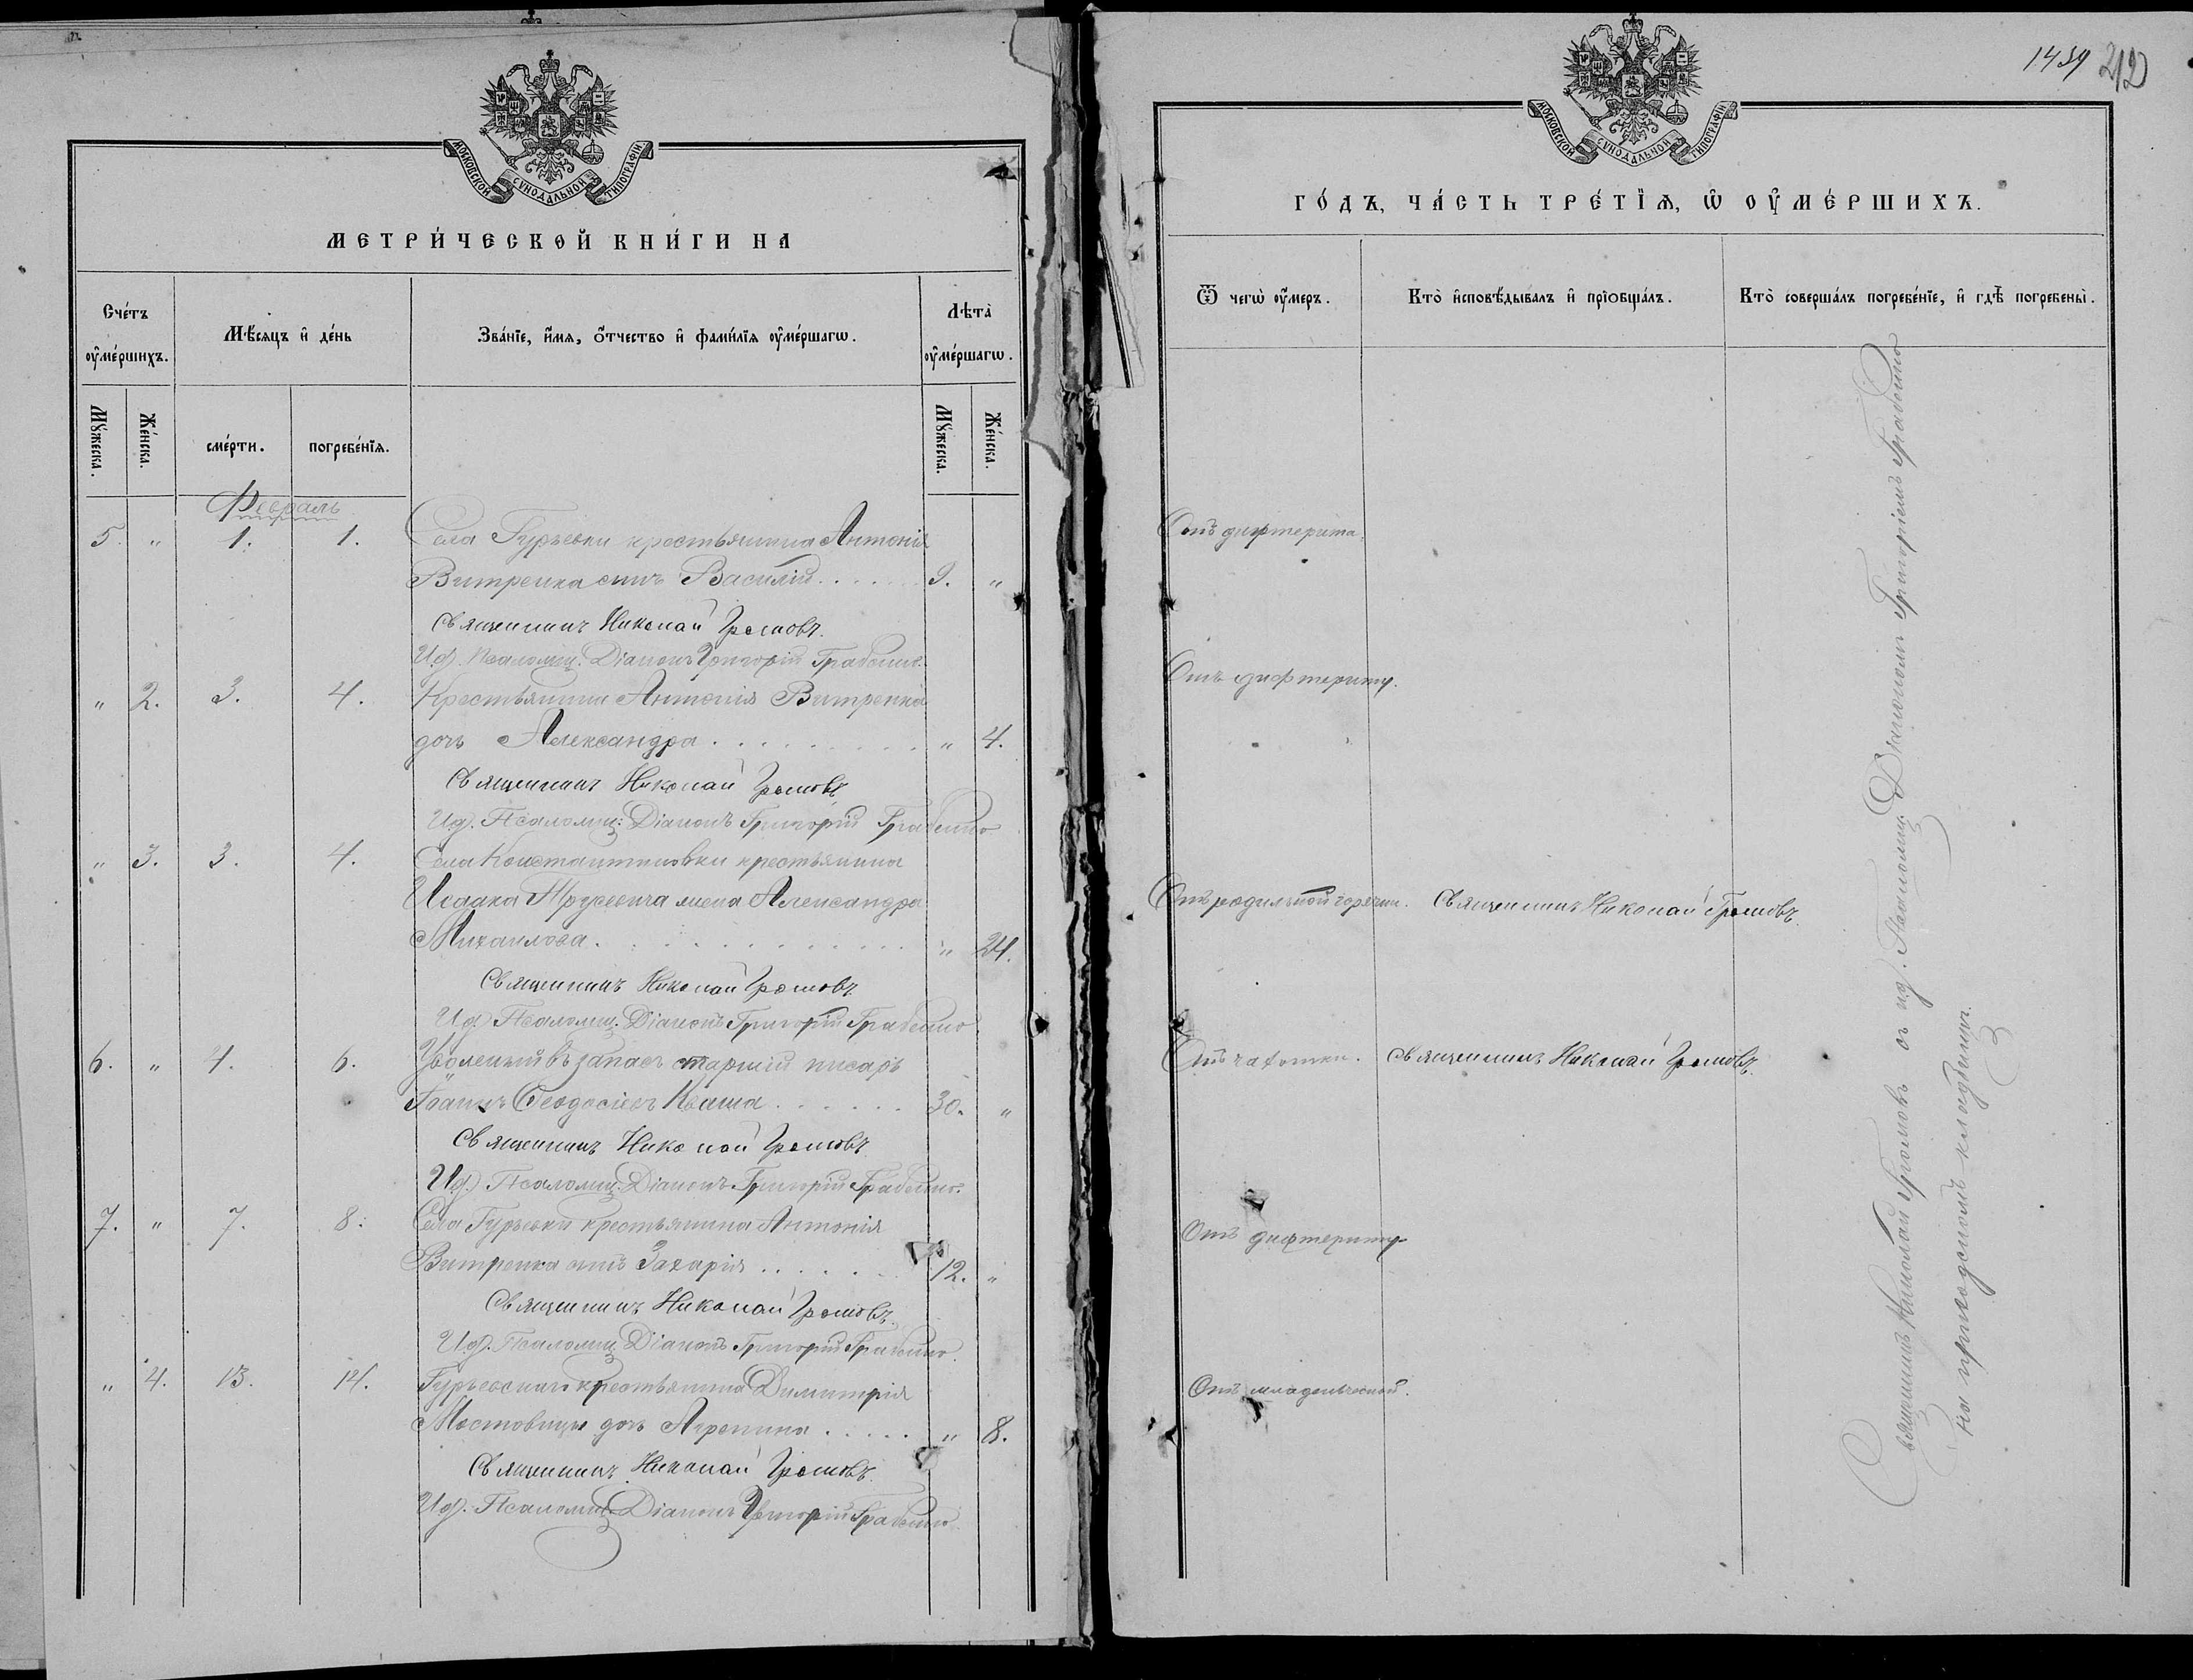 МОСКОВСКОЙ СУНОДАЛЬНОЙ ТИПОГРАФІИ
МЕТРИ́ЧЕСКОЙ КНИ́ГИ НА
Сче́тъ ᲂу҆ме́ршихъ.
Мꙋ́жеска.
Же́нска.
Мѣ́сяцъ и҆ де́нь
сме́рти.
погребе́нїѧ.
Зва́нїе, и҆́мѧ, ѻ҆́тчество и҆ фами́лїѧ ᲂу҆ме́ршагѡ.
Лѣта̀ ᲂу҆ме́ршагѡ.
Мꙋ́жеска.
Же́нска.
Февраль
5. " 1. 1. Села Гурьевки крестьянина Антонія
Витренка сынъ Василій . . . . . . 9. "
Священникъ Николай Громовъ.
И.д. Псаломщ. Діаконъ Григорій Грабенко
" 2. 3. 4. Крестьянина Антонія Витренка
дочь Александра . . . . . . . . . " 4.
Священникъ Николай Громовъ
И.д. Псаломщ: Діаконъ Григорій Грабенко
" 3. 3. 4. Села Константиновки крестьянина
Исаака жена Александра
Михаилова . . . . . . . . . . . . " 24.
Священникъ Николай Громовъ
И.д. Псаломщ. Діаконъ Григорій Грабенко
6. " 4. 6. Уволеный въ запасъ старшій писарь
Іоаннъ Ѳеодосіевъ Кваша . . . . . . 30. "
Священникъ Николай Громовъ
И.д. Псаломщ. Діаконъ Григорій Грабенко.
7. " 7. 8. Села Гурьевки крестьянина Антонія
Витренка сынъ Захарія . . . . . . 12. "
Священникъ Николай Громовъ.
И.д. Псаломщ. Діаконъ Григорій Грабенко.
" 4. 13. 14. Гурьевскаго крестьянина Димитрія
Мостовицы дочь Агрепина . . . . . " 8.
Священникъ Николай Громовъ.
И.д. Псаломщ. Діаконъ Григорій Грабенко
1459 212
МОСКОВСКОЙ СУНОДАЛЬНОЙ ТИПОГРАФІИ
ГО́ДЪ, ЧА́СТЬ ТРЕ́ТЇѦ, Ѡ҆ ОУ҆МЕ́РШИХЪ.
Ѿ чегѡ̀ ᲂу҆́меръ.
Кто̀ и҆сповѣ́дывалъ и҆ прїѻбща́лъ.
Кто̀ соверша́лъ погребе́нїе, и҆ гдѣ̀ погребены̀.
Отъ дифтерита.
Отъ дифтериту.
Отъ родильной горячки. Священникъ Николай Громовъ.
Отъ чахотки. Священникъ Николай Громовъ.
Отъ дифтериту
Отъ младенческой.
Священникъ Николай Громовъ съ и.д. Псаломщ. Діакономъ Григоріемъ Грабенко
на приходскомъ кладбищѣ.